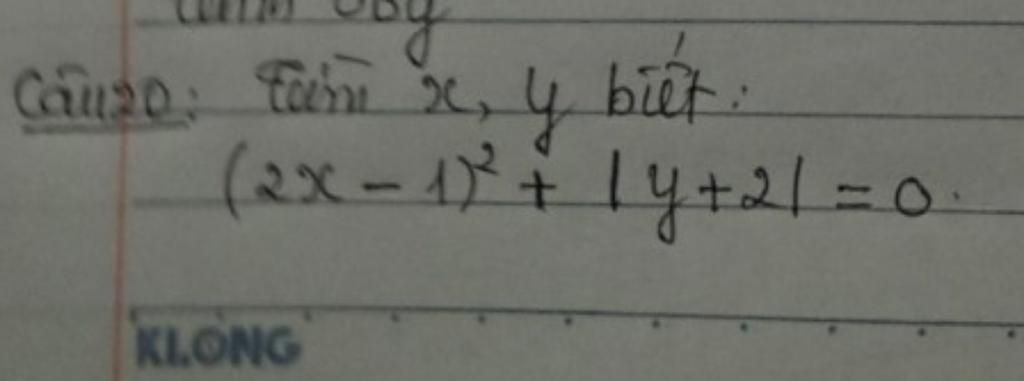 Câu 20: Tìm x, y biết:
(2x - 1)² + |y + 2| = 0.
KLONG